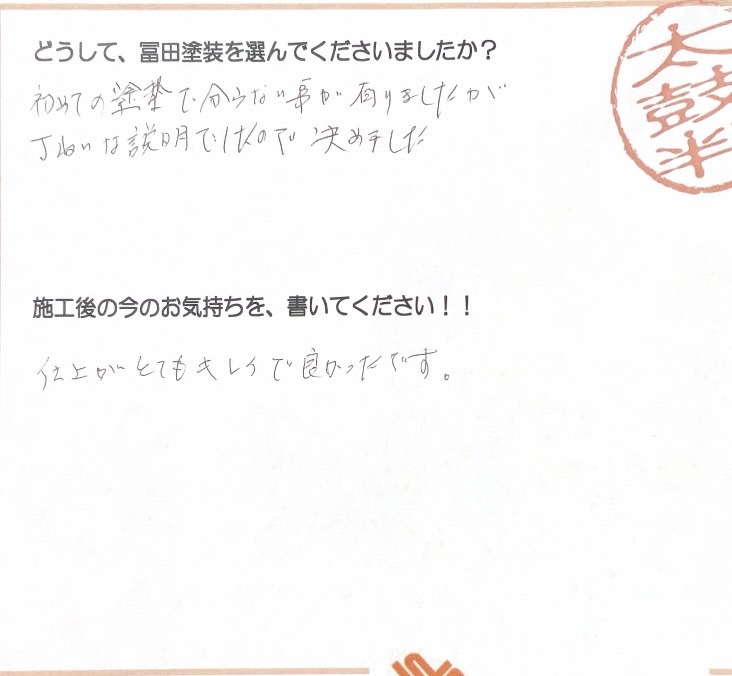 どうして、冨田塗装を選んでくださいましたか？
初めての塗装で分らない事が有りましたがが
丁ねいな説明でしたので決めました
施工後の今のお気持ちを、書いてください！！
仕上がとてもキレイで良かったです。
太鼓判